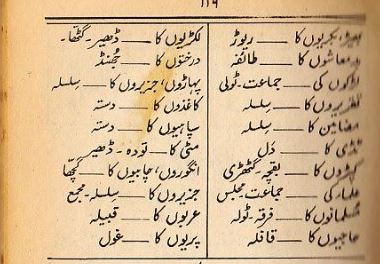 ۱۱۹
بھیڑ، بکریوں کا ــــ ریوڑ
بدمعاشوں کا ــــ طائفہ
لڑکوں کی ــــ جماعت۔ ٹولی
تقریروں کا ــــ سلسلہ
مضامین کا ــــ سلسلہ
ٹڈی کا ــــ دَل
کپڑوں کا ــــ بقچہ۔ گٹھڑی
علماء کی ــــ جماعت۔ مجلس
مسلمانوں کا ــــ فرقہ۔ ٹولہ
حاجیوں کا ــــ قافلہ
لکڑیوں کا ــــ ڈھیر۔ گٹھا۔
درختوں کا ــــ جُھنڈ
پہاڑوں، جزیروں کا ــــ سلسلہ
کاغذوں کا ــــ دستہ
سپاہیوں کا ــــ دستہ
مٹی کا ــــ تودہ۔ ڈھیر
انگوروں، چابیوں کا ــــ گچھا
جزیروں کا ــــ سلسلہ۔ مجمع
عربوں کا ــــ قبیلہ
پریوں کا ــــ غول